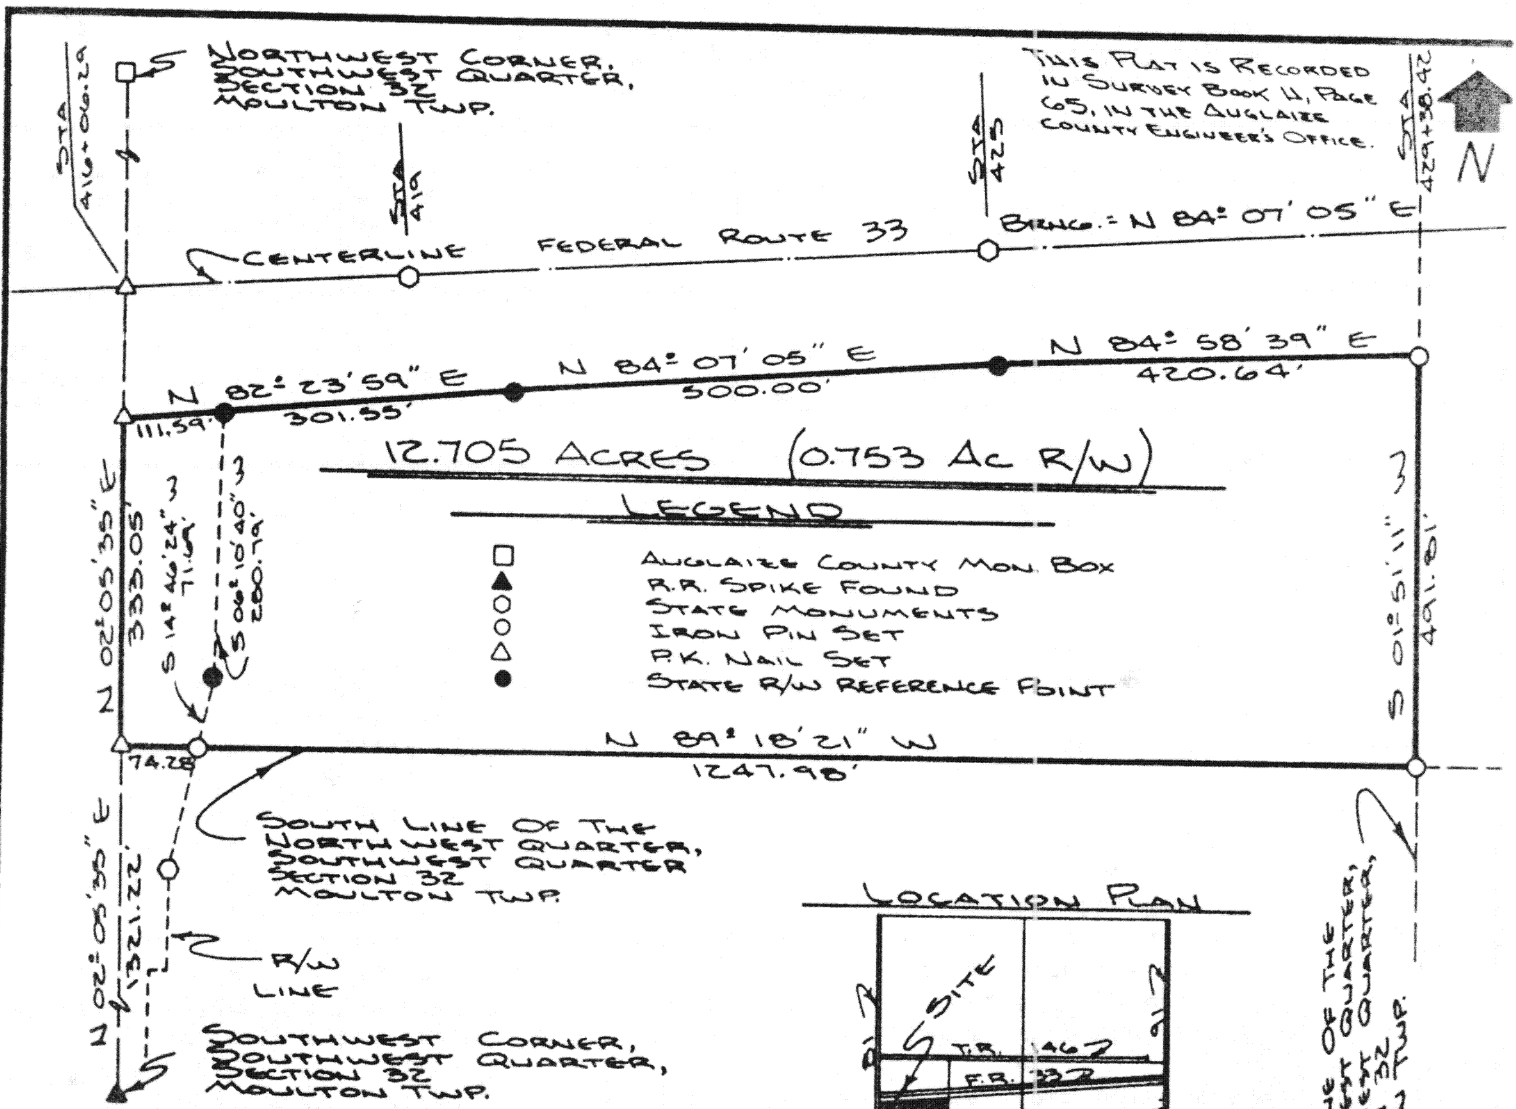 STA
416+06.29
NORTHWEST CORNER,
SOUTHWEST QUARTER,
SECTION 32
MOULTON TWP.
STA
419
STA
425
THIS PLAT IS RECORDED
IN SURVEY BOOK 11, PAGE
65, IN THE AUGLAIZE
COUNTY ENGINEER'S OFFICE.
STA
429+38.42
N
CENTERLINE FEDERAL ROUTE 33
BRNG. = N 84° 07' 05" E
N 82° 23' 59" E
111.59'
301.55'
N 84° 07' 05" E
500.00'
N 84° 58' 39" E
420.64'
12.705 ACRES (0.753 AC R/W)
LEGEND
AUGLAIZE COUNTY MON. BOX
R.R. SPIKE FOUND
STATE MONUMENTS
IRON PIN SET
P.K. NAIL SET
STATE R/W REFERENCE POINT
N 02° 05' 35" E
333.05'
S 14° 46' 24" W
71.69'
S 06° 10' 40" W
260.79'
S 01° 51' 11" W
491.81'
N 89° 18' 21" W
1247.98'
74.28'
SOUTH LINE OF THE
NORTHWEST QUARTER,
SOUTHWEST QUARTER
SECTION 32
MOULTON TWP.
N 02° 05' 35" E
1321.22'
R/W
LINE
SOUTHWEST CORNER,
SOUTHWEST QUARTER,
SECTION 32
MOULTON TWP.
LOCATION PLAN
SITE
T.R. 146
F.R. 33
OF THE
QUARTER,
QUARTER,
32
TWP.